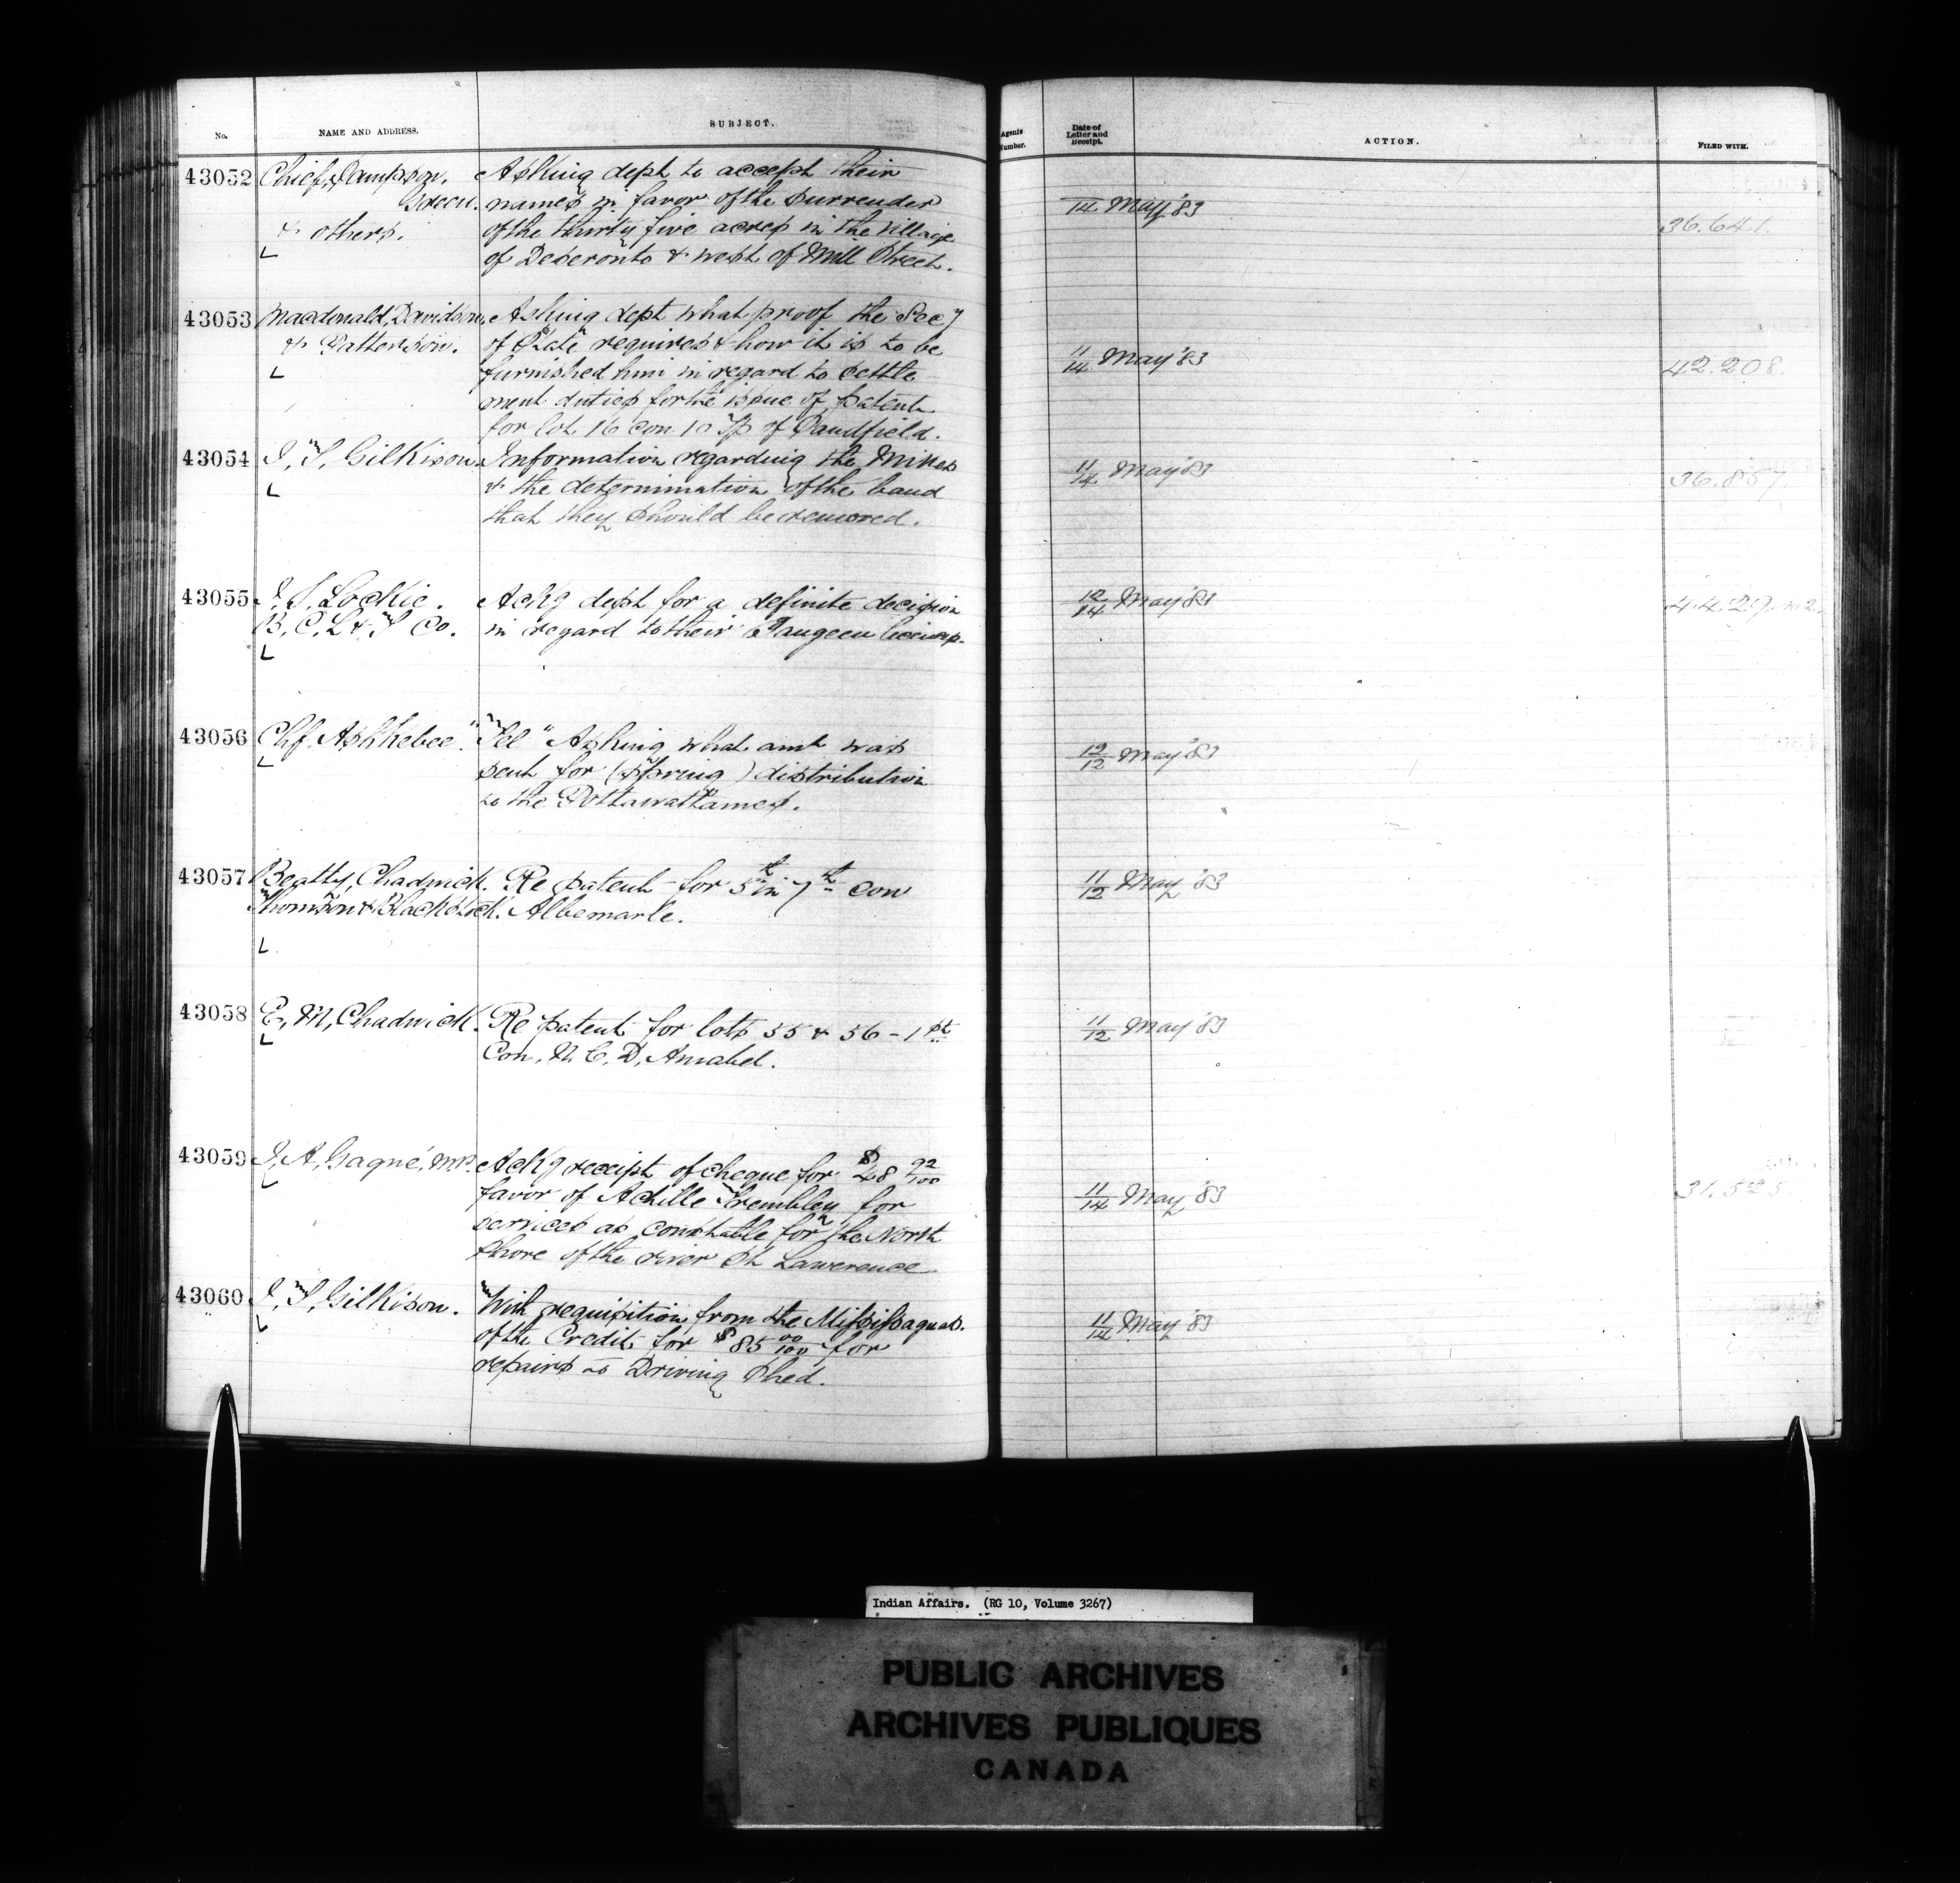 No.
NAME AND ADDRESS.
SUBJECT.
Agents Number.
Date of Letter and Receipt.
ACTION.
FILED WITH.
43052
Chief Sampson
Green.
& others.
Asking dept to accept their
names in favor of the surrender
of the thirty five acres in the village
of Deseronto & west of Mill Street.
14 May '83
36.641.
43053
Macdonald, Davidson,
& Patterson.
Asking dept what proof the Secy
of State requires & how it is to be
furnished him in regard to settle
ment duties for the issue of patent
for lot 16 con. 10 Tp of Sandfield.
11/14 May '83
42.208.
43054
J, T, Gilkison.
Information regarding the Mikes
& the determination of the band
that they should be removed.
11/14 May '83
36.857.
43055
J. S. Lockie.
B. C. L & T Co.
Ackg dept for a definite decision
in regard to their Saugeen
12/14 May '83
43056
Chf. Ashkebee.
"Tel" Asking what amt was
sent for (Spring) distribution
to the Pottawattamies.
12/12 May '83
43057
Beatty, Chadwick.
Thomson & Blackstock.
Re patent for 5 in 7th con
Albemarle.
11/12 May '83
43058
E, M, Chadwick.
Re patent for lots 55 & 56 - 1st
Con, N. C. D, Amabel.
11/12 May '83
43059
J, A, Gagné, M.P.
Ackg receipt of cheque for $48 92/100
favor of Achille Trembley for
services as constable for the North
Shore of the river St Lawerence
11/14 May '83
31.525
43060
J, T, Gilkison.
With requisition from the Mississaguas.
of the Credit for $85 00/100 for
repairs to Driving Shed.
11/14 May '83
Indian Affairs. (RG 10, Volume 3267)
PUBLIC ARCHIVES
ARCHIVES PUBLIQUES
CANADA